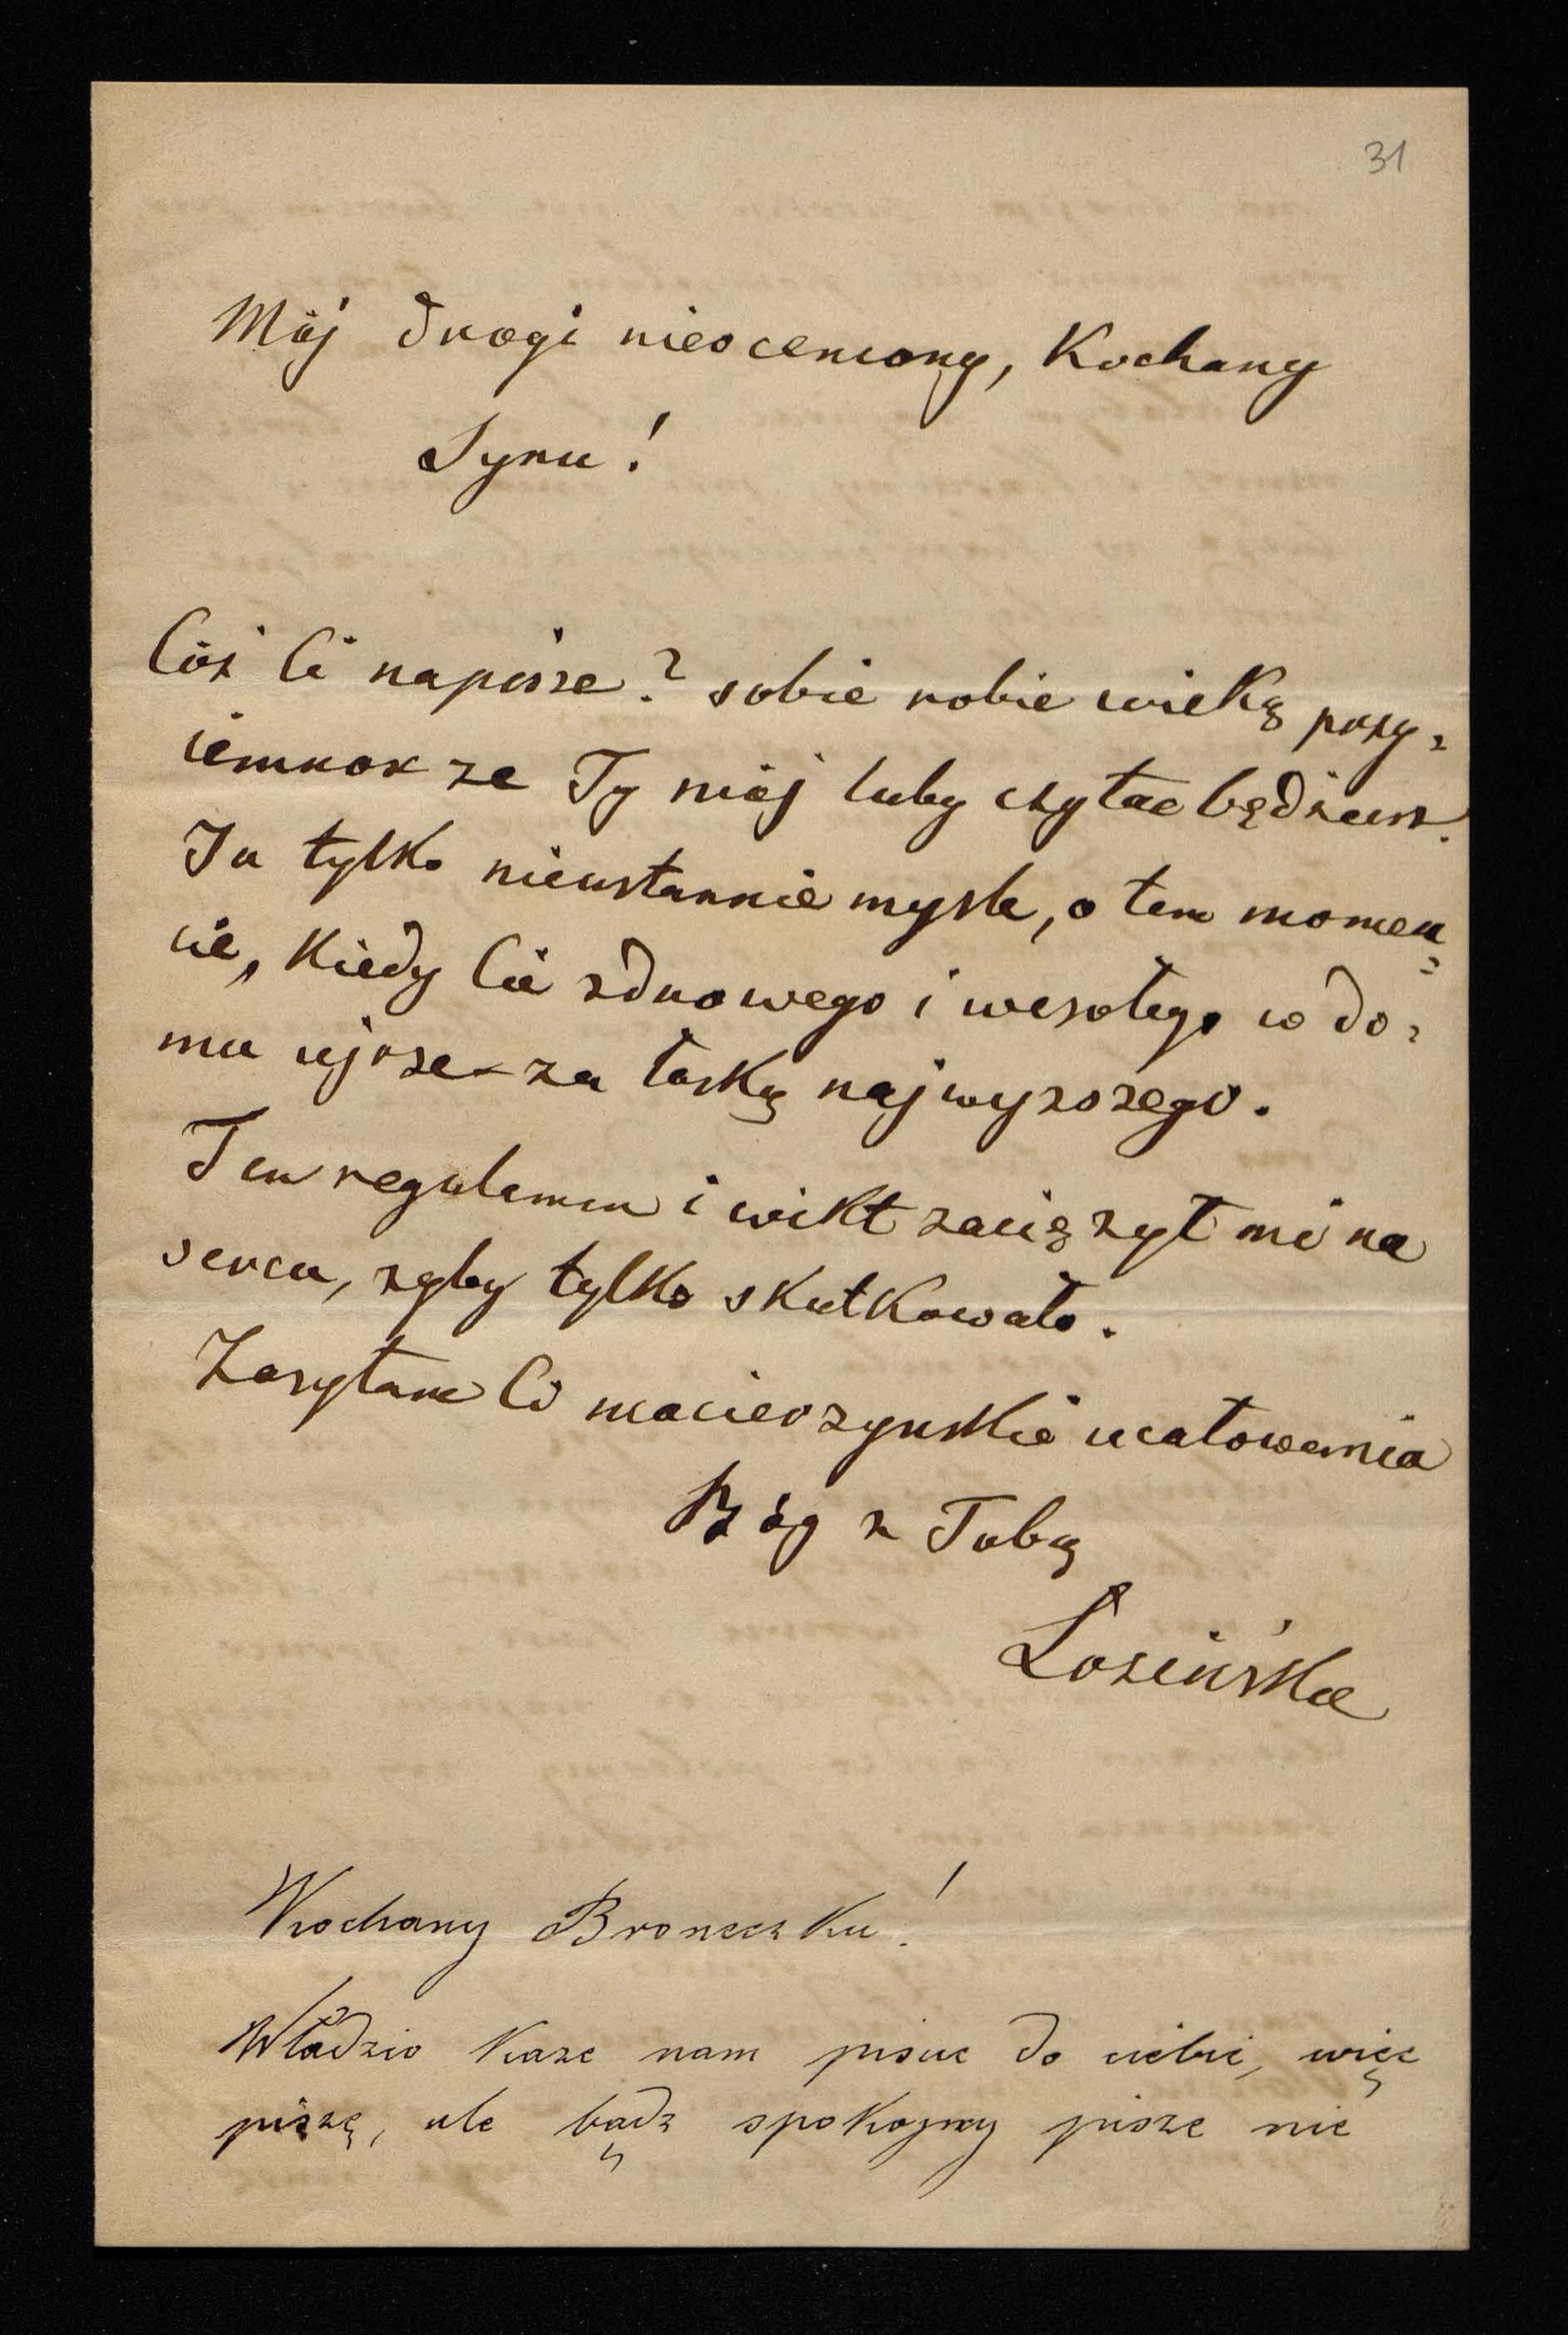 31
Mój drogi nieoceniony, Kochany
Synu!
Cóż Ci napisze? sobie robie wielką przy-
iemnox ze Ty mój luby czytac będziesz.
Ja tylko nieustannie mysle, o tem momen=
cie, Kiedy Cie zdrowego i wesołego w do-
mu ujrze - za łaską najwyzszego.
Ten regulamen i wikt zaciązył mi na
sercu, zeby tylko skutkowało.
Zasyłam Ci macierzynskie ucałowania
Bóg z Tobą
Łozińska
Kochany Broneczku!
Władzio Kaze nam pisac do ciebie, więc
piszę, ale bądz spokojny pisze nie